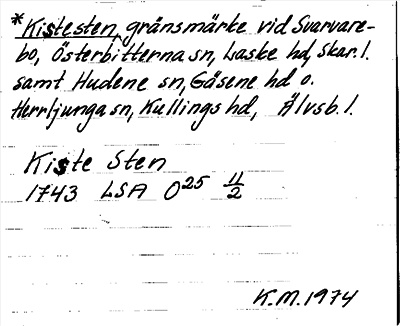 *Kistesten, gränsmärke vid Svarvare-
bo, Österbitterna sn, Laske hd, Skar. l.
samt Hudene sn, Gäsene hd o.
Herrljunga sn, Kullings hd, Älvsb. l.
Kiste Sten
1743 LSA O25 11/2
K.M. 1974